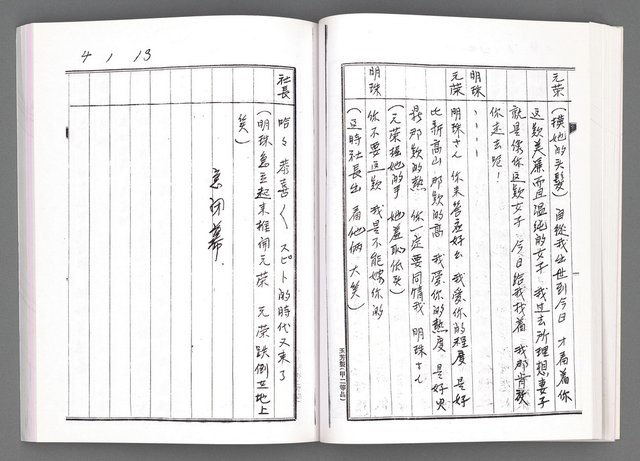 元荣
(摸她的头髮)自從我出世到今日 才看着你
這款美麗而且溫純的女子 我过去所理想妻子
就是像你這款女子 今日给我找着 我那肯放
你走去呢!
明珠
、、、、
元荣
明珠さん 你来答應好么 我爱你的程度 是好
比新高山那款的高 我爱你的热度 是好火
那款的熱 你一定要同情我 明珠さん
(元荣握她的手 她羞恥低头)
明珠
你不要這款 我是不能嫁你的
(這時社長出 看他俩大笑)
王芳製(甲二等品)
4 1 13
社長
哈々 恭喜〱 スピト的時代又来了
(明珠急立起来推開元荣 元荣跌倒在地上
笑)
急闭幕